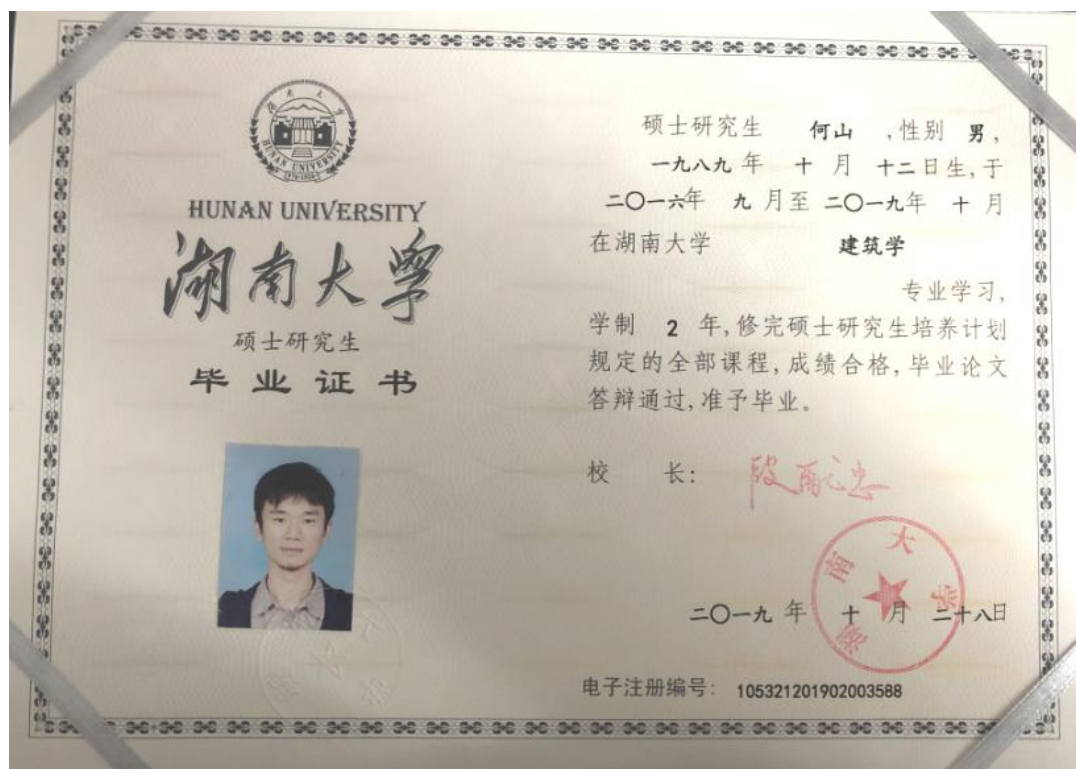 湖南大学
HUNAN UNIVERSITY
1976-1926
HUNAN UNIVERSITY
湖南大学
硕士研究生
毕业证书
硕士研究生 何山 ,性别 男,
一九八九 年 十 月 十二 日生,于
二〇一六年 九 月至 二〇一九年 十 月
在湖南大学 建筑学
专业学习,
学制 2 年,修完硕士研究生培养计划
规定的全部课程,成绩合格,毕业论文
答辩通过,准予毕业。
校 长: 段献忠
湖南大学
二〇一九 年 十 月 二十八日
电子注册编号: 105321201902003588